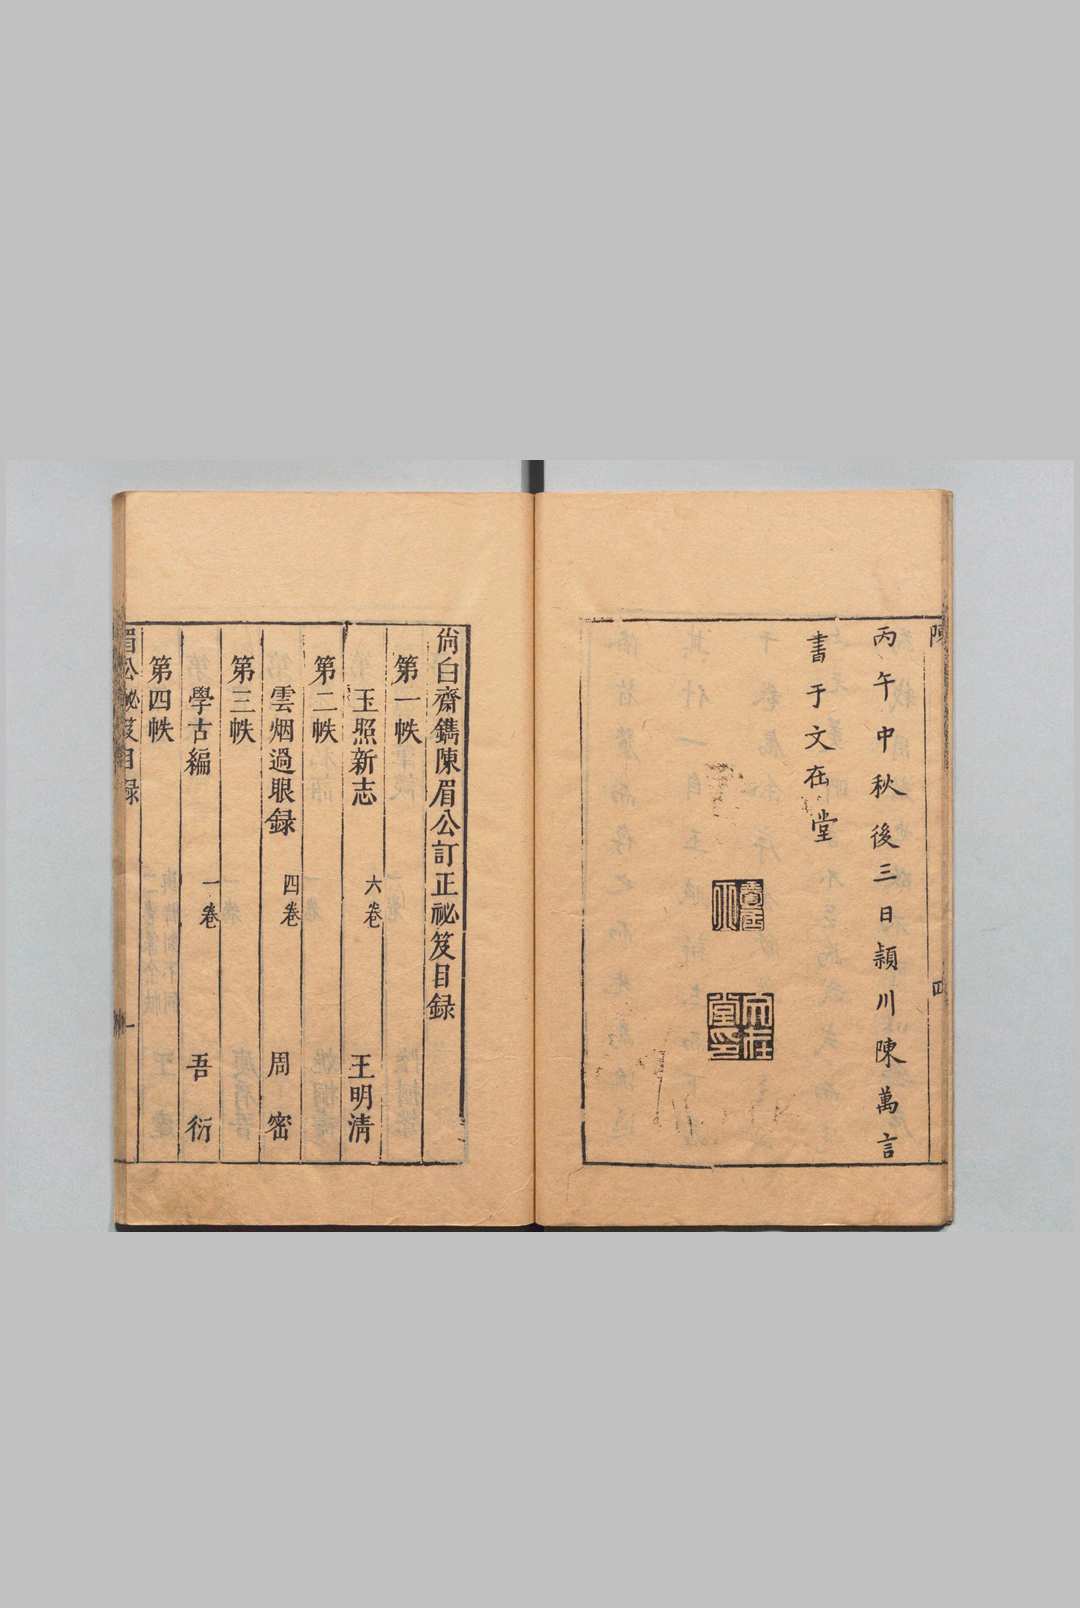 丙午中秋後三日潁川陳萬言
書于文在堂
文在堂印
尙白齋鐫陳眉公訂正祕笈目録
第一帙
玉照新志 六卷 王明淸
第二帙
雲烟過眼録 四卷 周密
第三帙
學古編 一卷 吾衍
第四帙
眉公祕笈目録 一